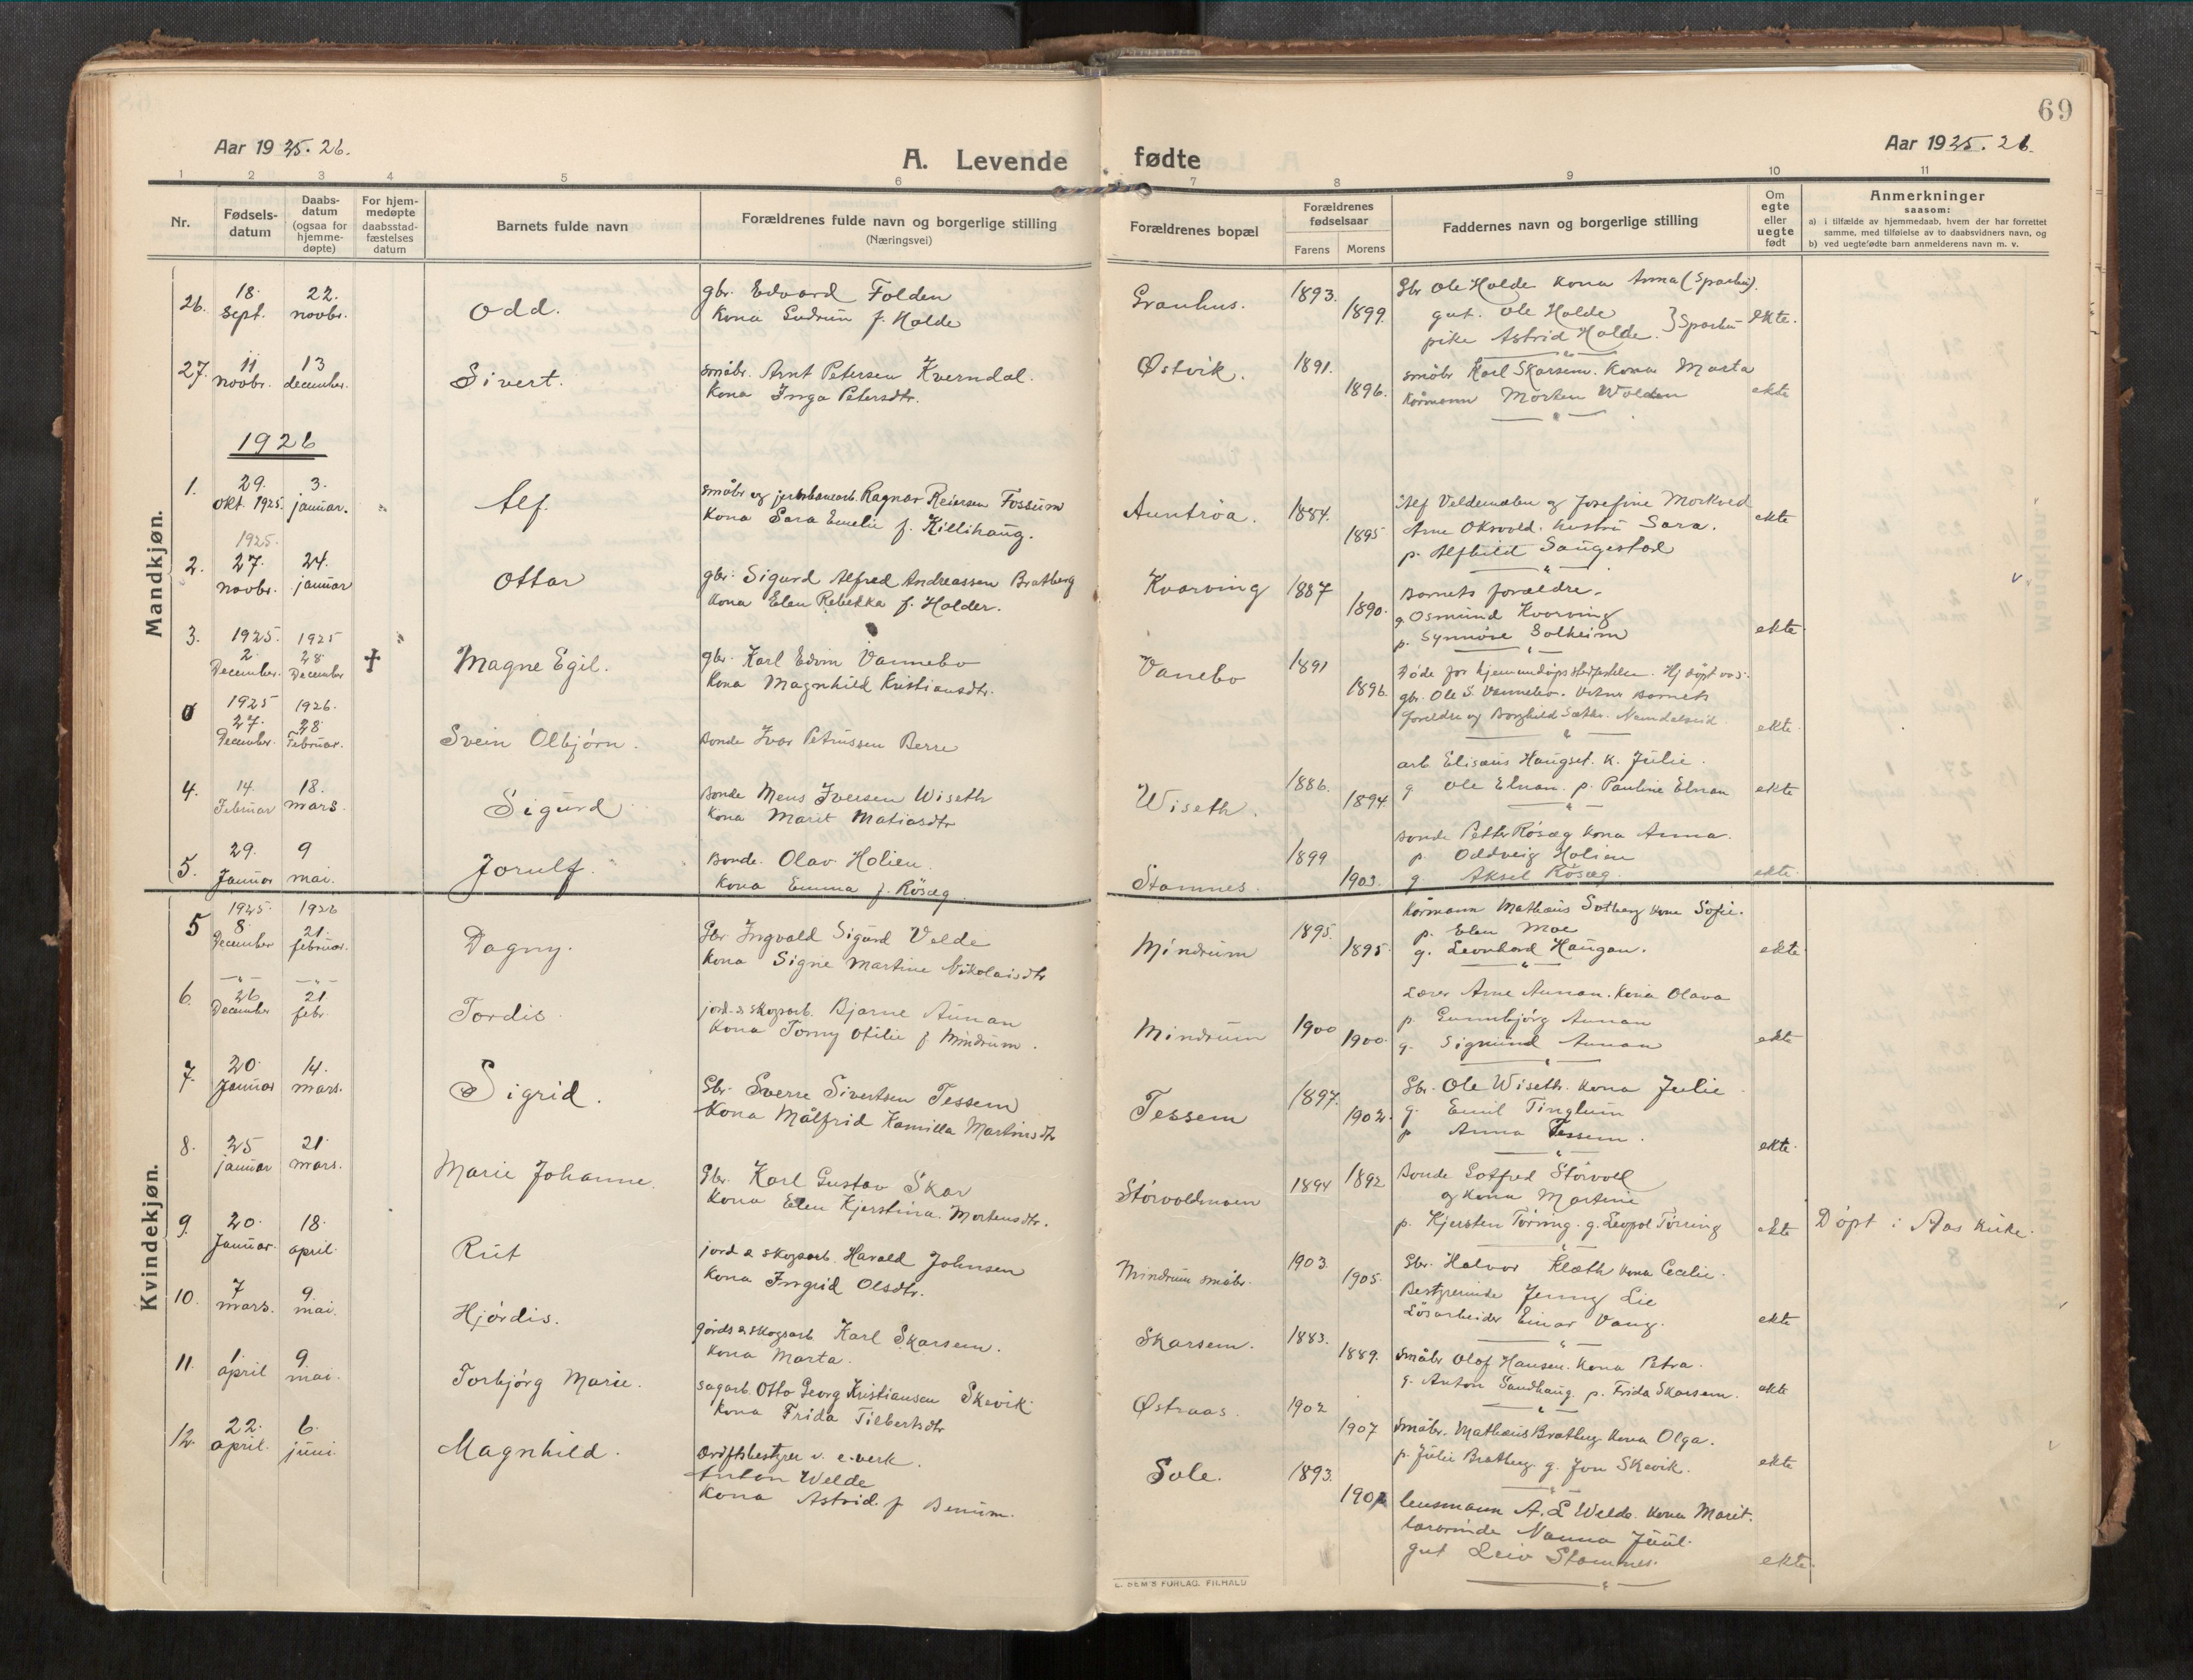 69
Aar 1925. 26.
A. Levende fødte
Aar 1925. 26.
1 2 3 4 5 6 7 8 9 10 11
Nr.
Fødsels-
datum
Daabs-
datum
(ogsaa for
hjemme-
døpte)
For hjem-
medøpte
daabsstad-
fæstelses
datum
Barnets fulde navn
Forældrenes fulde navn og borgerlige stilling
(Næringsvei)
Forældrenes bopæl
Forældrenes
fødselsaar
Farens Morens
Faddernes navn og borgerlige stilling
Om
egte
eller
uegte
født
Anmerkninger
saasom:
a) i tilfælde av hjemmedaab, hvem der har forrettet
samme, med tilføielse av to daabsvidners navn, og
b) ved uegtefødte barn anmelderens navn m. v.
Mandkjøn.
26. 18. sept. 22. novbr. Odd.
gbr. Edvard Folden
Kona Gudrun f. Holde
Granhus. 1893. 1899.
Gbr Ole Holde kona Anna (Sparbu).
gut. Ole Holde
pike Astrid Holde. } Sparbu
ekte.
27. 11 novbr. 13 december. Sivert.
småbr. Arnt Petersen Kverndal.
Kona Inga Petersdtr.
Østvik. 1891. 1896.
småbr Karl Skarsem. Kona Marta
Kørmann Morten Wolden
ekte
1926
1. 29. okt. 1925. 3. januar. Alf.
småbr og jernbanearb. Ragnar Reiersen Fossum
Kona Sara Emelie f. Killihaug.
Auntrøa. 1884. 1895
Alf Veldemalen og Josefine Morkved
Arne Oksvold. hustru Sara.
p. Alfhild Saugestad
ekte
2. 1925. 27. novbr. 24. januar Ottar
gbr. Sigurd Alfred Andreassen Bratberg
Kona Elen Rebekka f. Holder.
Kvarving 1887 1890.
Barnets forældre.
g Osmund Kvarving
p. Synnøve Solheim
ekte
3. 1925. 2. December. 1925 28 December † Magne Egil.
gbr. Karl Edvin Vannebo
Kona Magnhild Kristiansdtr.
Vanebo 1891 1896.
gbr. Ole S. Vannebo. Vitner Barnets
foreldre og Borghild Sæther. Namdalseid
ekte
0 1925 27. December. 1926. 28. Februar. Svein Olbjørn.
Bonde Ivar Petrussen Berre
4. 14. Februar 18. mars. Sigurd
Bonde Mens Iversen Wiseth
Kona Marit Matiasdtr
Wiseth. 1886. 1894.
arb. Elisæus Haugset. K. Julie.
g Ole Elnan. p. Pauline Elnan
ekte
5. 29. Januar 9 mai. Jorulf.
Bonde. Olav Holien.
Kona Emma f. Røsæg.
Stamnes. 1899 1903.
Bonde Petter Røsæg Kona Anna.
p. Oddveig Holien
g. Aksel Røsæg.
ekte
Kvindekjøn.
5 1925. 8. December 1926 21. februar. Dagny.
Gbr. Ingvald Sigurd Velde
Kona Signe Martine Nikolaisdtr
Mindrum 1895. 1895.
Kørmann Mathæus Solberg Kona Sofie.
p. Elen Moe
g. Leonhard Haugan.
ekte
6. 26 December 21 febr. Tordis.
jord- & skogsarb. Bjarne Aunan
Kona Tomy Otilie f Mindrum.
Mindrum 1900 1900.
Lærer Arne Aunan. Kona Olava
p. Gunnbjørg Aunan
g. Sigmund Aunan
ekte
7. 20. Januar 14. mars. Sigrid.
Gbr. Sverre Sivertsen Tessem
Kona Målfrid Kamilla Martinsdtr
Tessem 1897. 1902.
Gbr. Ole Wiseth. kona Julie
g. Emil Tinglum
p Anna Tessem.
ekte.
8. 25 januar 21 mars. Marie Johanne.
Gbr. Karl Gustav Skar
Kona Elen Kjerstina Mortensdtr.
Størvoldmoen 1894 1892
Bonde Gotfred Størvoll
og kona Martine
p. Kjersten Tørring. g. Leopol Tørring
ekte
Døpt i Aas kirke.
9. 20. Januar. 18. april. Rut
jord & skogsarb. Harald Johnsen
Kona Ingrid Olsdtr.
Mindrum småbr. 1903. 1905.
Gbr. Halvor Klæth kona Cecilie.
Bestyrerinde Jenny Lie
Løsarbeider Einar Vang.
ekte
10. 7 mars. 9. mai. Hjørdis.
gårds & skogsarb Karl Skarsem.
Kona Marta.
Skarsem. 1883. 1889.
Småbr Olaf Hansen. Kona Petra.
g. Anton Sandhaug p. Frida Skarsem.
ekte
11. 1. april 9. mai. Torbjørg Marie.
sagarb. Otto Georg Kristiansen Skevik
Kona Frida Tilbertsdtr
Østraas. 1902 1907
småbr. Mathæus Bratberg Kona Olga.
p. Julie Bratberg. g. Jon Skevik.
ekte
12. 22. april. 6. juni. Magnhild.
Driftsbestyrer v. e-verk.
Anton Welde
Kona Astrid f Benum.
Sole. 1893.
lensmann A. L Welde. kona Marit.
lærerinde Nanna Juul.
gut Leiv Stamnes.
ekte
E. SEM'S FORLAG. FR.HALD